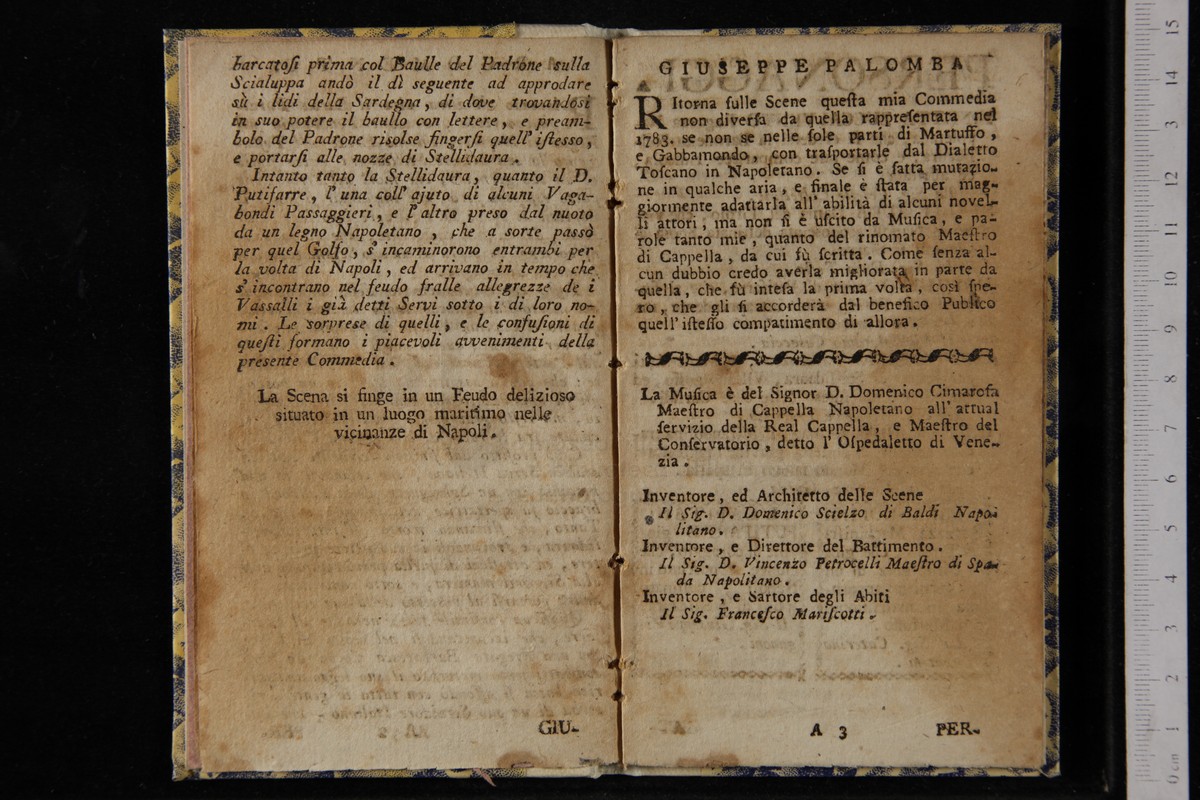 barcatoſi prima col Baulle del Padrone sulla
Scialuppa andò il dì seguente ad approdare
sù i lidi della Sardegna, di dove trovandosi
in suo potere il baullo con lettere, e pream-
bolo del Padrone risolse fingerſi quell' iſteſſo,
e portarſi alle nozze di Stellidaura.
Intanto tanto la Stellidaura, quanto il D.
Putifarre, l' una coll' ajuto di alcuni Vaga-
bondi Paſſaggieri, e l' altro preso dal nuoto
da un legno Napoletano, che a sorte passò
per quel Golfo, s' incaminorono entrambi per
la volta di Napoli, ed arrivano in tempo che
s' incontrano nel feudo fralle allegrezze de i
Vassalli i già detti Servi sotto i di loro no-
mi. Le sorprese di quelli, e le confuſioni di
queſti formano i piacevoli avvenimenti della
presente Commedia.
La Scena si finge in un Feudo delizioso
situato in un luogo maritimo nelle
vicinanze di Napoli.
GIU-
GIUSEPPE PALOMBA
RItorna ſulle Scene queſta mia Commedia
non diverſa da quella rappreſentata nel
1783. se non se nelle ſole parti di Martuffo,
e Gabbamondo, con traſportarle dal Dialetto
Toſcano in Napoletano. Se ſi è fatta mutazio-
ne in qualche aria, e finale è ſtata per mag-
giormente adattarla all' abilità di alcuni novel-
li attori, ma non ſi è uſcito da Muſica, e pa-
role tanto mie, quanto del rinomato Maeſtro
di Cappella, da cui fù ſcritta. Come ſenza al-
cun dubbio credo averla migliorata in parte da
quella, che fù inteſa la prima volta, così ſpe-
ro, che gli ſi accorderà dal benefico Publico
quell' iſteſſo compatimento di allora.
La Muſica è del Signor D. Domenico Cimaroſa
Maeſtro di Cappella Napoletano all' attual
ſervizio della Real Cappella, e Maeſtro del
Conſervatorio, detto l' Oſpedaletto di Vene-
zia.
Inventore, ed Architetto delle Scene
Il Sig. D. Domenico Scielzo di Baldi Napo-
litano.
Inventore, e Direttore del Battimento.
Il Sig. D. Vincenzo Petrocelli Maeſtro di Spa-
da Napolitano.
Inventore, e Sartore degli Abiti
Il Sig. Franceſco Mariſcotti.
A 3
PER-
0 cm 1 2 3 4 5 6 7 8 9 10 11 12 13 14 15